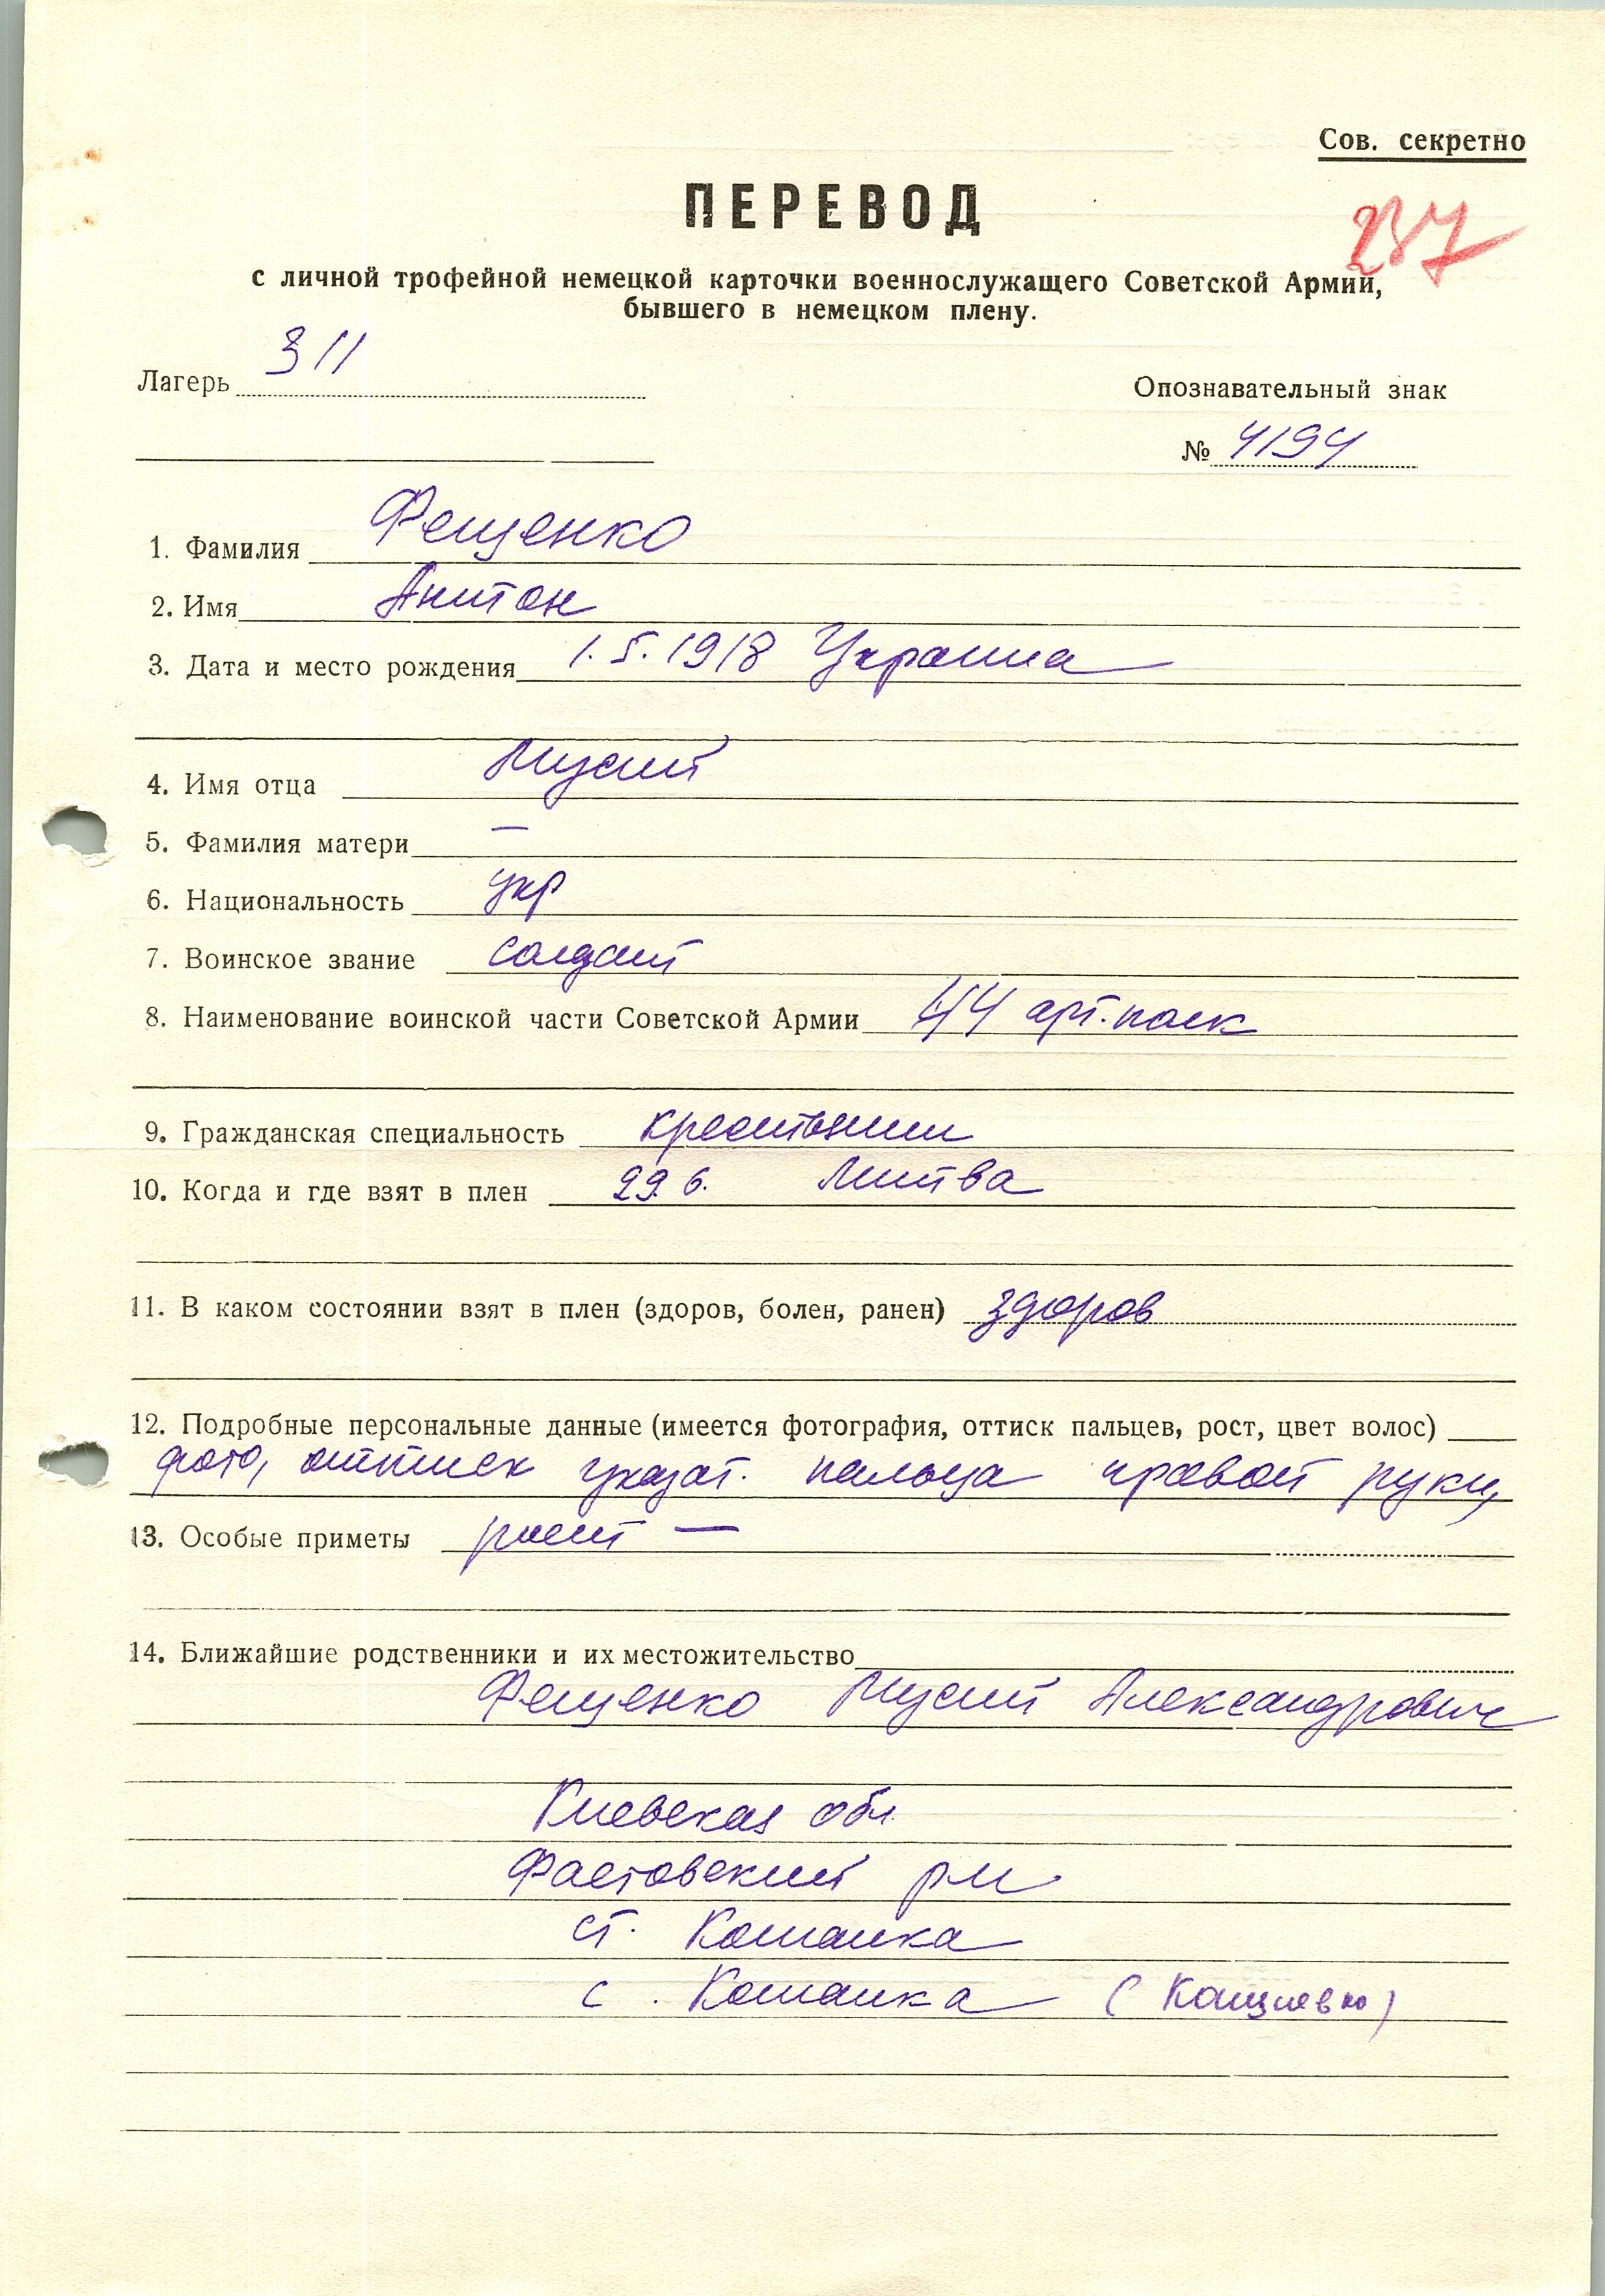 Сов. секретно
ПЕРЕВОД
287
с личной трофейной немецкой карточки военнослужащего Советской Армии,
бывшего в немецком плену.
Лагерь 311
Опознавательный знак
№ 4194
1. Фамилия Фещенко
2. Имя Антон
3. Дата и место рождения 1.5.1918 Украина
4. Имя отца Мусий
5. Фамилия матери —
6. Национальность укр
7. Воинское звание солдат
8. Наименование воинской части Советской Армии 44 арт.полк
9. Гражданская специальность крестьянин
10. Когда и где взят в плен 29.6. Литва
11. В каком состоянии взят в плен (здоров, болен, ранен) здоров
12. Подробные персональные данные (имеется фотография, оттиск пальцев, рост, цвет волос)
фото, оттиск указат. пальца правой руки,
13. Особые приметы рост —
14. Ближайшие родственники и их местожительство
Фещенко Мусий Александрович
Киевская обл.
Фастовский рн
ст. Кошанка
с. Кошанка (